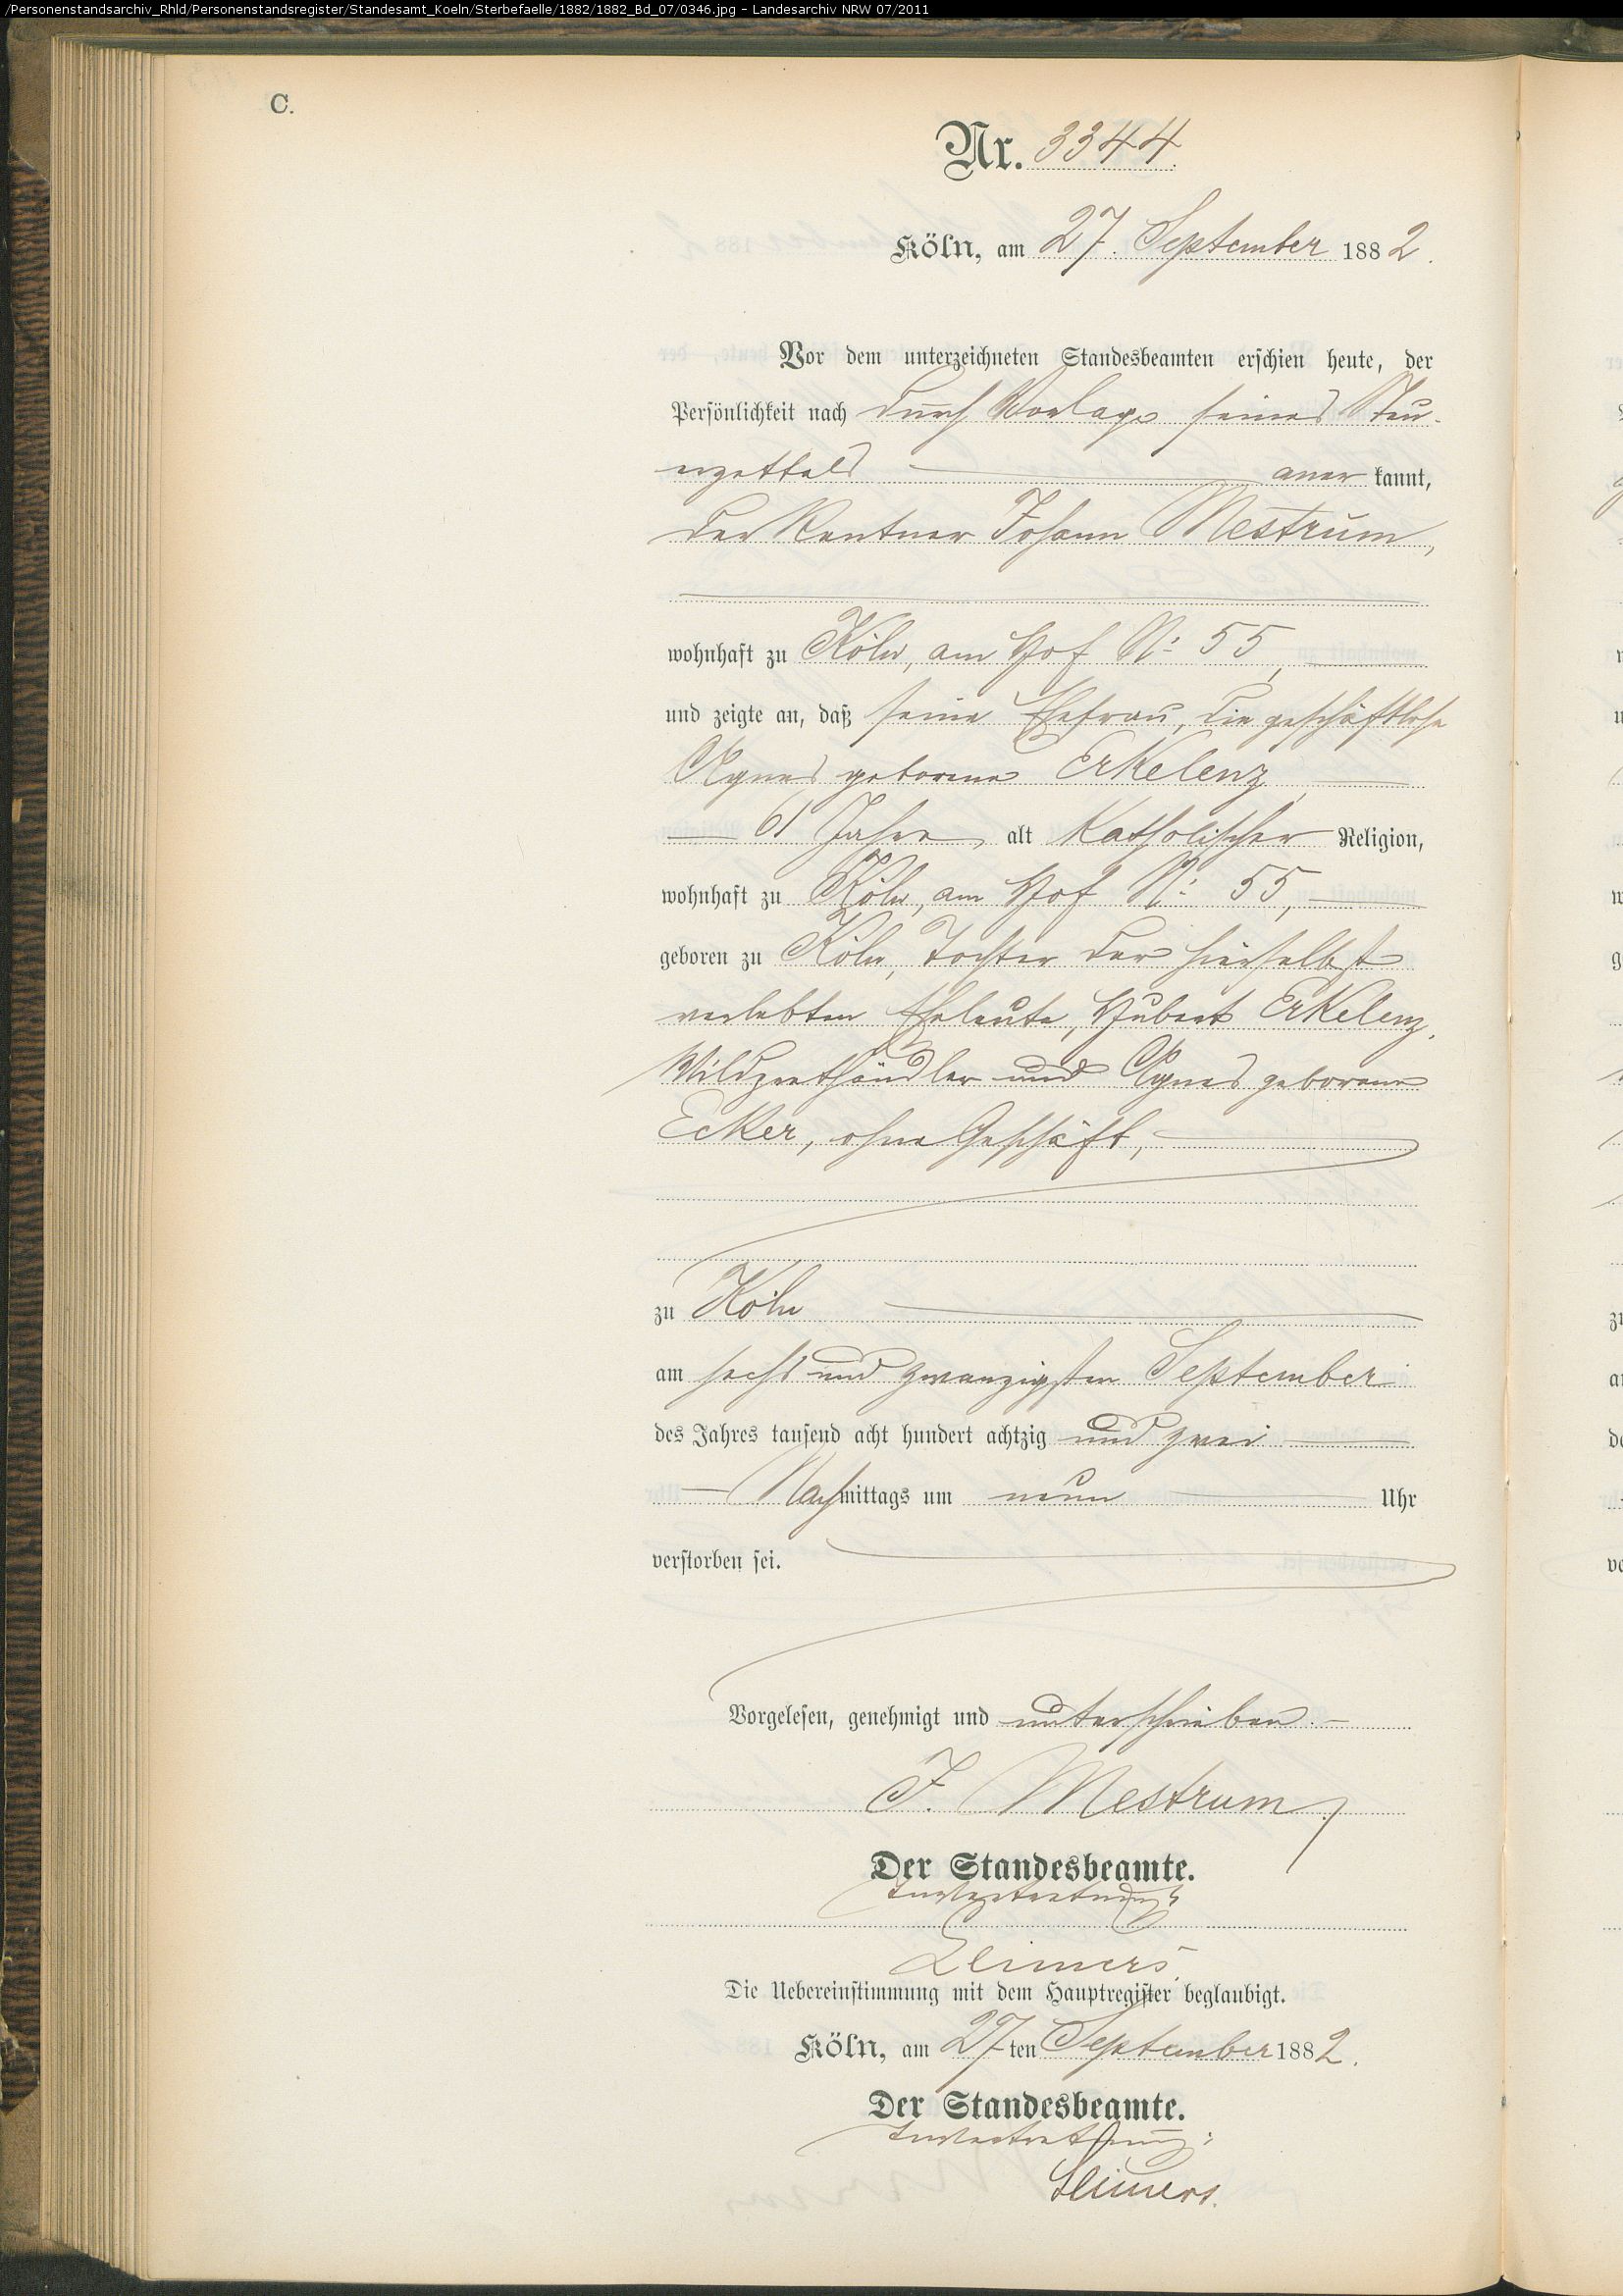 /Personenstandsarchiv_Rhld/Personenstandsregister/Standesamt_Koeln/Sterbefaelle/1882/1882_Bd_07/0346.jpg - Landesarchiv NRW 07/2011
C.
Nr. 3344.
Köln, am 27. September 1882.
Vor dem unterzeichneten Standesbeamten erschien heute, der
Persönlichkeit nach durch Vorlage seines Steu-
erzettels anerkannt,
der Rentner Johann Mestrum,
wohnhaft zu Köln, am Hof No 55,
und zeigte an, daß seine Ehefrau, die geschäftlose
Agnes geborene Erkelenz,
61 Jahre, alt katholischer Religion,
wohnhaft zu Köln, am Hof No 55,
geboren zu Köln, Tochter der hierselbst
verlebten Eheleute, Hubert Erkelenz,
Wildprethändler und Agnes geborene
Ecker, ohne Geschäft,
zu Köln
am sechs und zwanzigsten September
des Jahres tausend acht hundert achtzig und zwei
Nachmittags um neun Uhr
verstorben sei.
Vorgelesen, genehmigt und unterschrieben.
J. Mestrum
Der Standesbeamte.
In Vertretung
Die Uebereinstimmung mit dem Hauptregister beglaubigt.
Köln, am 27ten September 1882.
Der Standesbeamte.
In Vertretung: